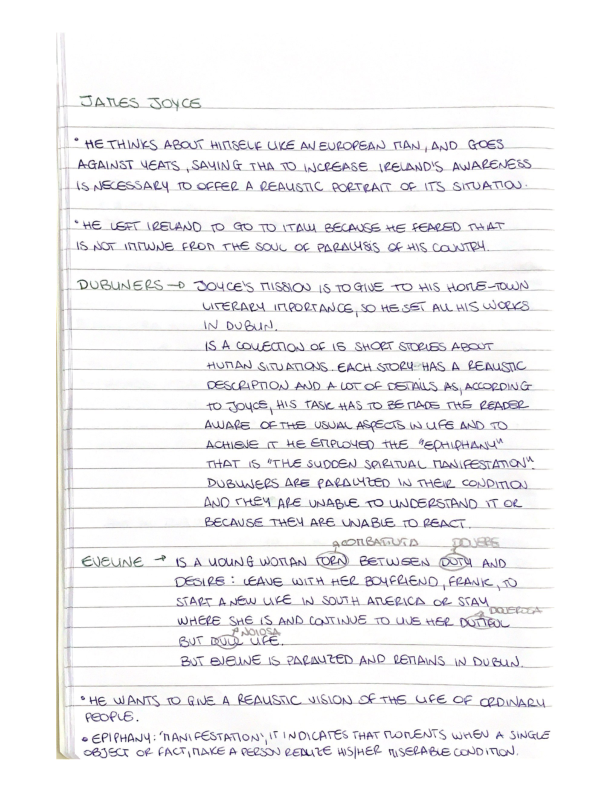 JAMES JOYCE
• HE THINKS ABOUT HIMSELF LIKE AN EUROPEAN MAN, AND GOES
AGAINST YEATS, SAYING THA TO INCREASE IRELAND'S AWARENESS
IS NECESSARY TO OFFER A REALISTIC PORTRAIT OF ITS SITUATION.
• HE LEFT IRELAND TO GO TO ITALY BECAUSE HE FEARED THAT
IS NOT IMMUNE FROM THE SOUL OF PARALYSIS OF HIS COUNTRY.
DUBLINERS → JOYCE'S MISSION IS TO GIVE TO HIS HOME-TOWN
LITERARY IMPORTANCE, SO HE SET ALL HIS WORKS
IN DUBLIN.
IS A COLLECTION OF 15 SHORT STORIES ABOUT
HUMAN SITUATIONS. EACH STORY HAS A REALISTIC
DESCRIPTION AND A LOT OF DETAILS AS, ACCORDING
TO JOYCE, HIS TASK HAS TO BE MADE THE READER
AWARE OF THE USUAL ASPECTS IN LIFE AND TO
ACHIEVE IT HE EMPLOYED THE "EPHIPHANY"
THAT IS "THE SUDDEN SPIRITUAL MANIFESTATION".
DUBLINERS ARE PARALYZED IN THEIR CONDITION
AND THEY ARE UNABLE TO UNDERSTAND IT OR
BECAUSE THEY ARE UNABLE TO REACT.
COMBATTUTA DOVERE
EVELINE → IS A YOUNG WOMAN TORN BETWEEN DUTY AND
DESIRE: LEAVE WITH HER BOYFRIEND, FRANK, TO
START A NEW LIFE IN SOUTH AMERICA OR STAY
DOVEROSA
WHERE SHE IS AND CONTINUE TO LIVE HER DUTIFUL
NOIOSA
BUT DULL LIFE.
BUT EVELINE IS PARALYZED AND REMAINS IN DUBLIN.
• HE WANTS TO GIVE A REALISTIC VISION OF THE LIFE OF ORDINARY
PEOPLE.
• EPIPHANY: 'MANIFESTATION', IT INDICATES THAT MOMENTS WHEN A SINGLE
OBJECT OR FACT, MAKE A PERSON REALIZE HIS/HER MISERABLE CONDITION.